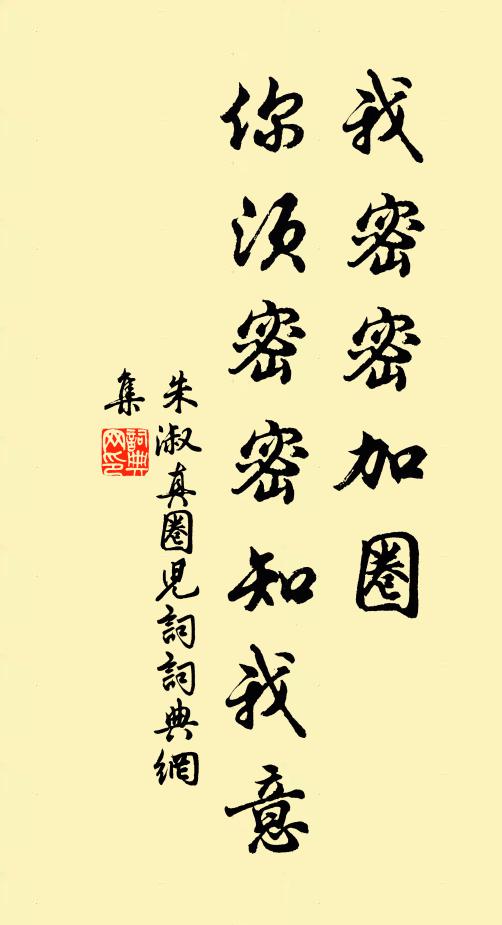 我密密加圈
你須密密知我意
朱淑真圈兒詞詞典網
集
詞典網印